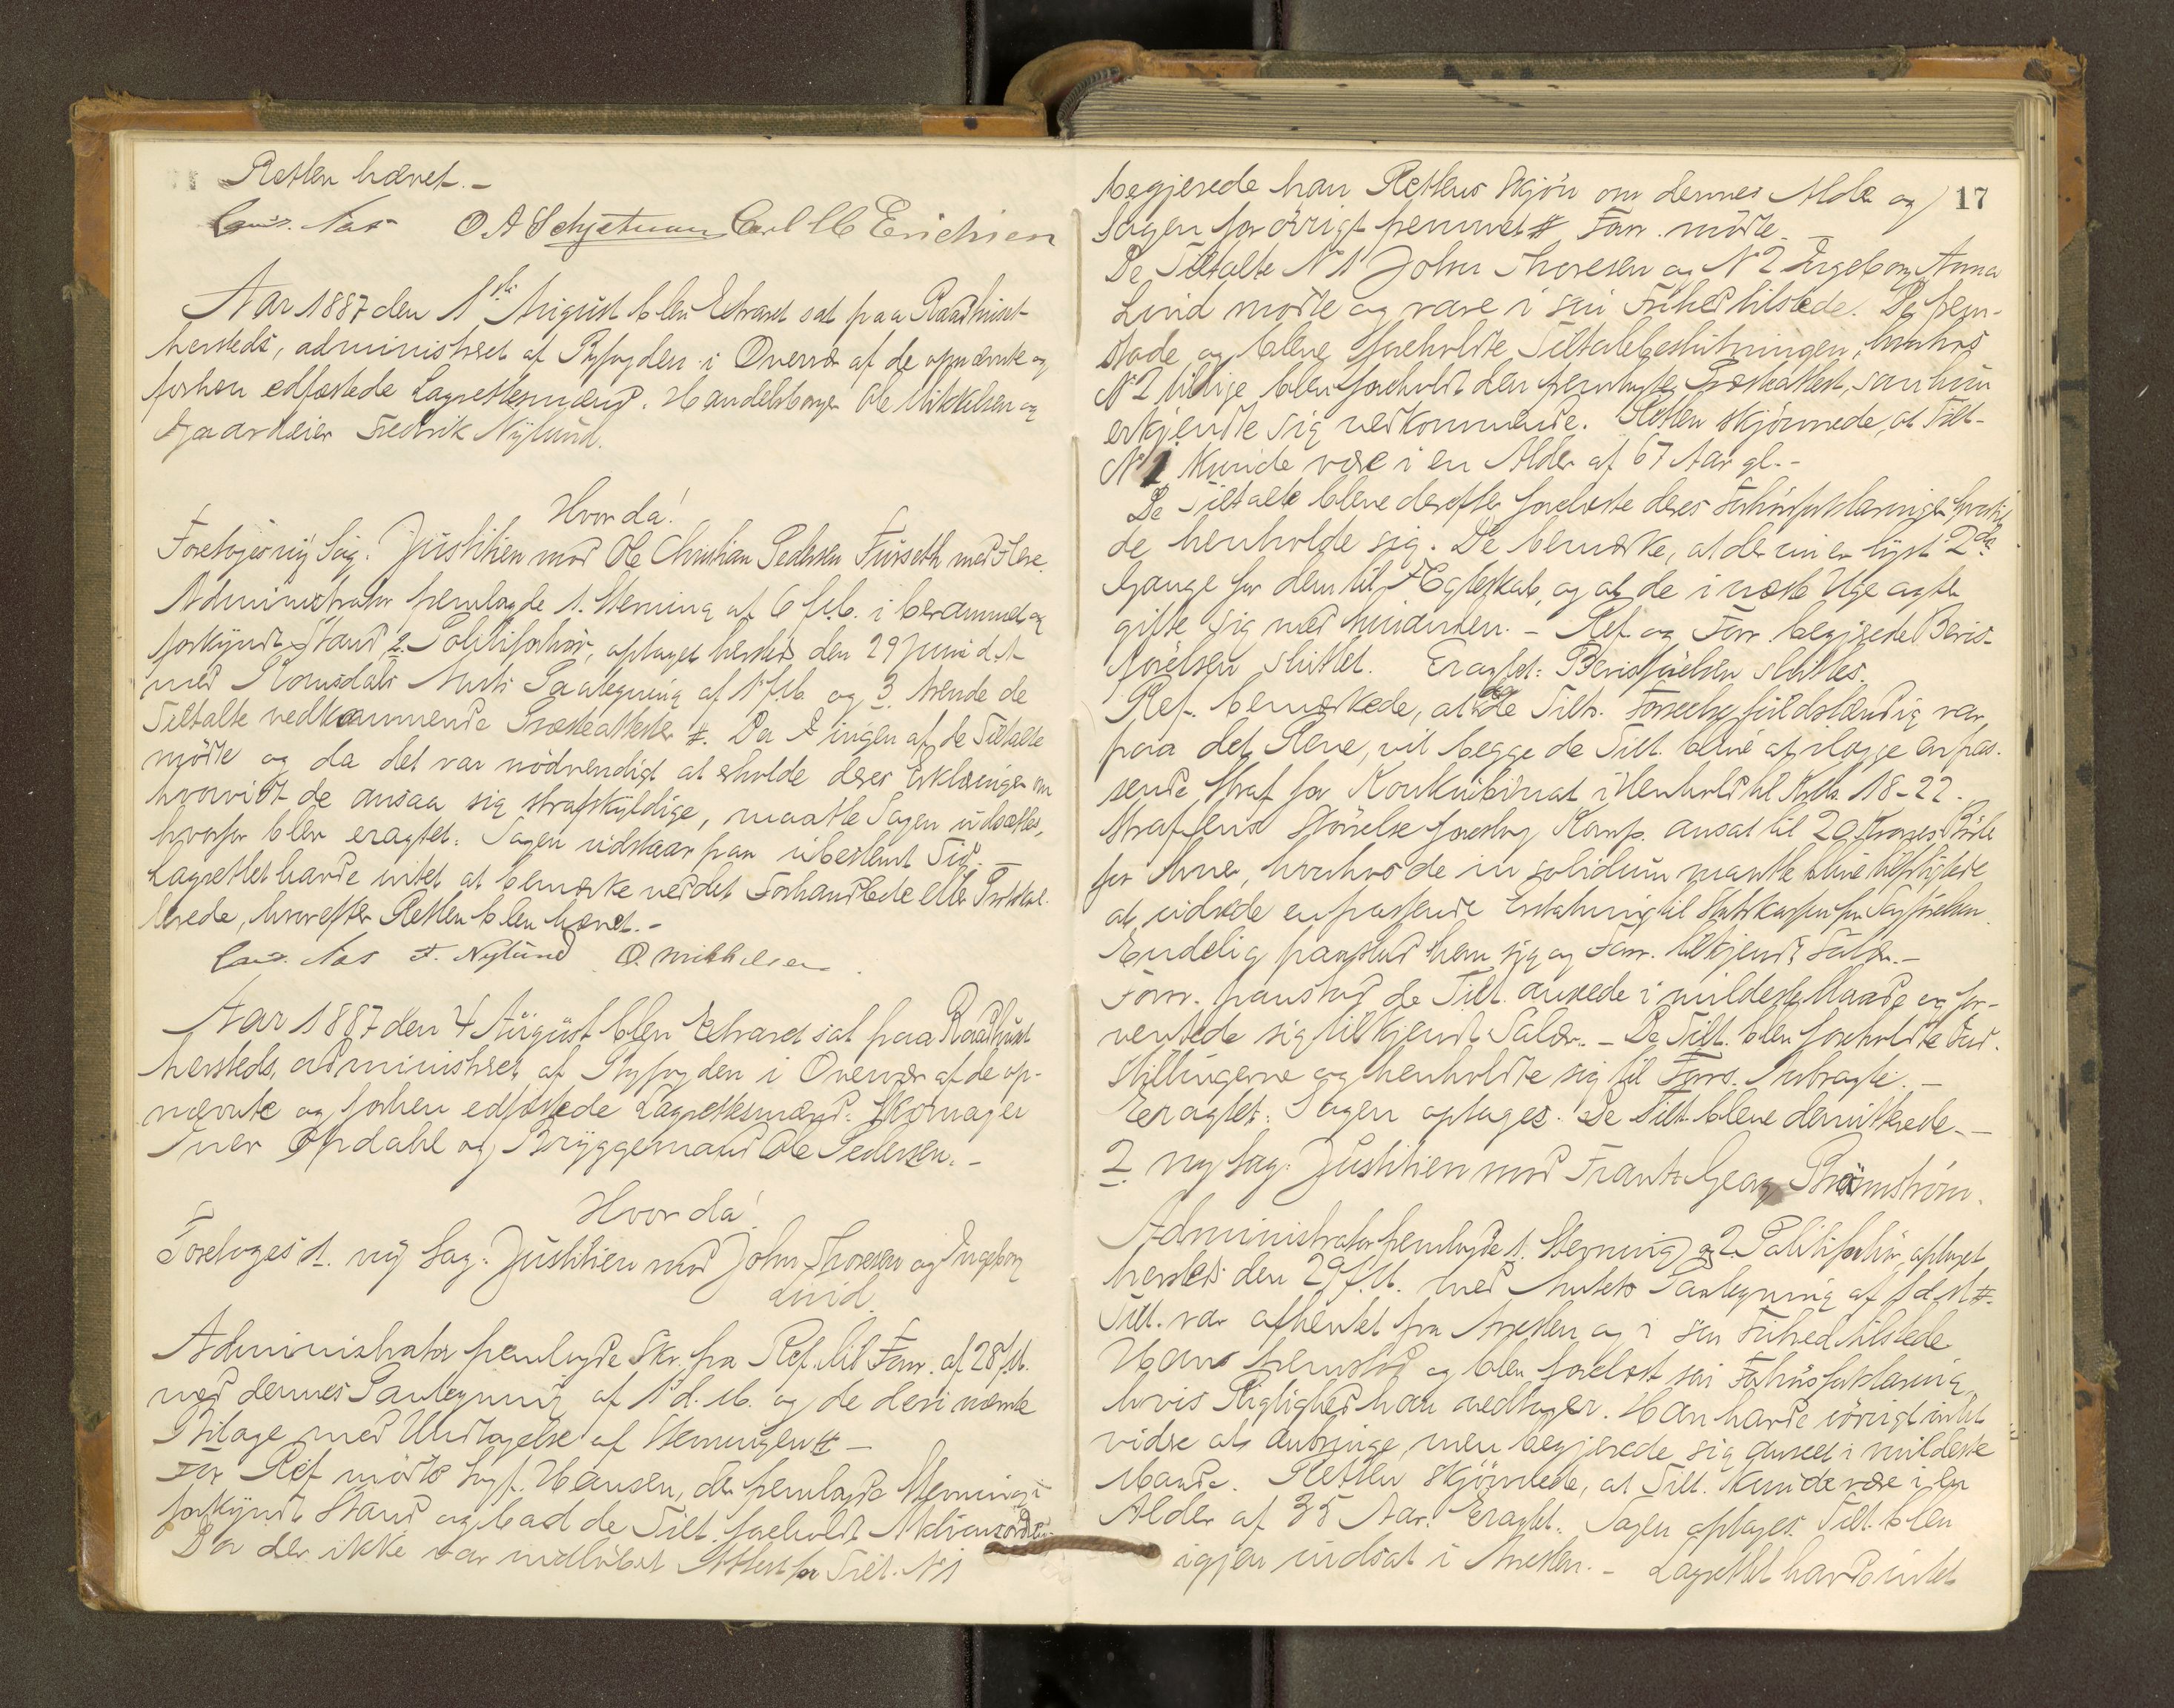 Retten hævet.-
O A Schjetnan Carl M Erichsen
Aar 1887 den 1ste August blev Extraret sat paa Raadhuset
hersteds, administreret af Byfogden i Overvær af de opnævnte og
forhen edfæstede Lagrettesmænd. Handelsborger Ole Mikkelsen og
Gaardeier Fredrik Nylund.
Hvor da!
Foretoges ny Sag. Justitien mod Ole Christian Pedersen Furseth med Flere.
Administrator fremlagde 1. Stevning af 6 f.M. i berammet og
forkyndt Stand 2. Politiforhør, optaget hersteds den 29 Juni d.A
med Romsdals Amts Paategning af 1 f.M. og 3. trende de
Tiltalte vedkommende Præsteattester #. Da ingen af de Tiltalte
mødte og da det var nødvendigt at erholde deres Erklæringer om
hvorvidt de ansaa sig strafskyldige, maatte Sagen udsættes,
hvorfor blev eragtet: Sagen udstaar paa ubestemt Tid. -
Lagrettet havde intet at bemærke ved det Forhandlede eller Protokol-
lerede, hvorefter Retten blev hævet.-
F. Nylund O. Mikkelsen
Aar 1887 den 4 August blev Extraret sat paa Raadhuset
hersteds, administreret af Byfogden i Overvær af de op-
nævnte og forhen edfæstede Lagrettesmænd: Skomager
Iver Opdahl og Bryggemand Ole Pedersen.-
Hvor da!
Foretoges 1. ny Sag: Justitien mod John Thoresen og Ingeborg
Lund.
Administrator fremlagde Skr. fra Ref. til Forr. af 28 f.M.
med dennes Paategning af 1 d.M. og de deri nævnte
Bilage med Undtagelse af Stevningen # -
For Ref mødte Sagf. Hansen, der fremlagde Stevning i
forkyndt Stand og bad de Tilt. foreholdt
Da der ikke var indløbet Attest for Tilt. N1
17
begjerede han Rettens Skjøn om dennes Alder og
Sagen forøvrigt fremmet # Forr. mødte.
De Tiltalte N1 John Thoresen og N2 Ingeborg Anna
Lund mødte og vare i sin Frihed tilstede. De frem-
stode og bleve foreholdte Tiltalebeslutningen, hvorhos
N2 tillige blev foreholdt den fremlagte Præsteattest, som hun
erkjendte sig vedkommende. Retten skjønnede, at Tilt-
N1 kunde være i en Alder af 67 Aar gl.-
De Tiltalte bleve derefter forelæste deres Forhørsforklaringer hvortil
de henholdt sig. De bemærke, at der nu er lyst 2de
Gange for dem til Ægteskab, og at de i næste Uge agte
gifte sig med hinanden. - Ref og Forr begjerede Bevis-
førelsen sluttet. Eragtet: Bevisførelsen sluttes.
Ref. bemærkede, at da de Tilts. Forseelse fuldstændig var
paa det Rene, vil begge de Tilt. blive at ilægge en pas-
sende Straf for Konkubinat i Henhold til Krls. 18-22.
Straffens Størrelse foreslog Komp. ansat til 20 Kroners Bøde
for hver, hvorhos de in solidum maatte blive tilpligtede
at udrede en passende Erstatning til Statskassen for Sagførelsen.
Endelig paastod han sig og Forr. tilkjendt Salær.-
Forr. paastod de Tilt. ansede i mildeste Maade og for-
ventede sig tilkjendt Salær. - De Tilt. blev foreholdte Ind-
stillingerne og henholdte sig til Forrs. Anbragte. -
Eragtet: Sagen optages. De Tilt. bleve demitterede. -
2. ny Sag: Justitien mod Frantz Georg Brännström.
Administrator fremlagde 1. Stevning og 2 Politiforhør, optaget
hersteds den 29 f.M. med Amtets Paategning af 1 d.M #.
Tilt. var afhentet fra Arresten og i sin Frihed tilstede
Han fremstod og blev forelæst sin Forhørsforklaring,
hvis Rigtighed han vedtager. Han havde iøvrigt intet
videre at anbringe, men begjerede sig anseet i mildeste
Maade. Retten skjønnede, at Tilt. kunde være i en
Alder af 35 Aar. Eragtet: Sagen optages. Tilt. blev
igjen indsat i Arresten. - Lagrettet havde intet